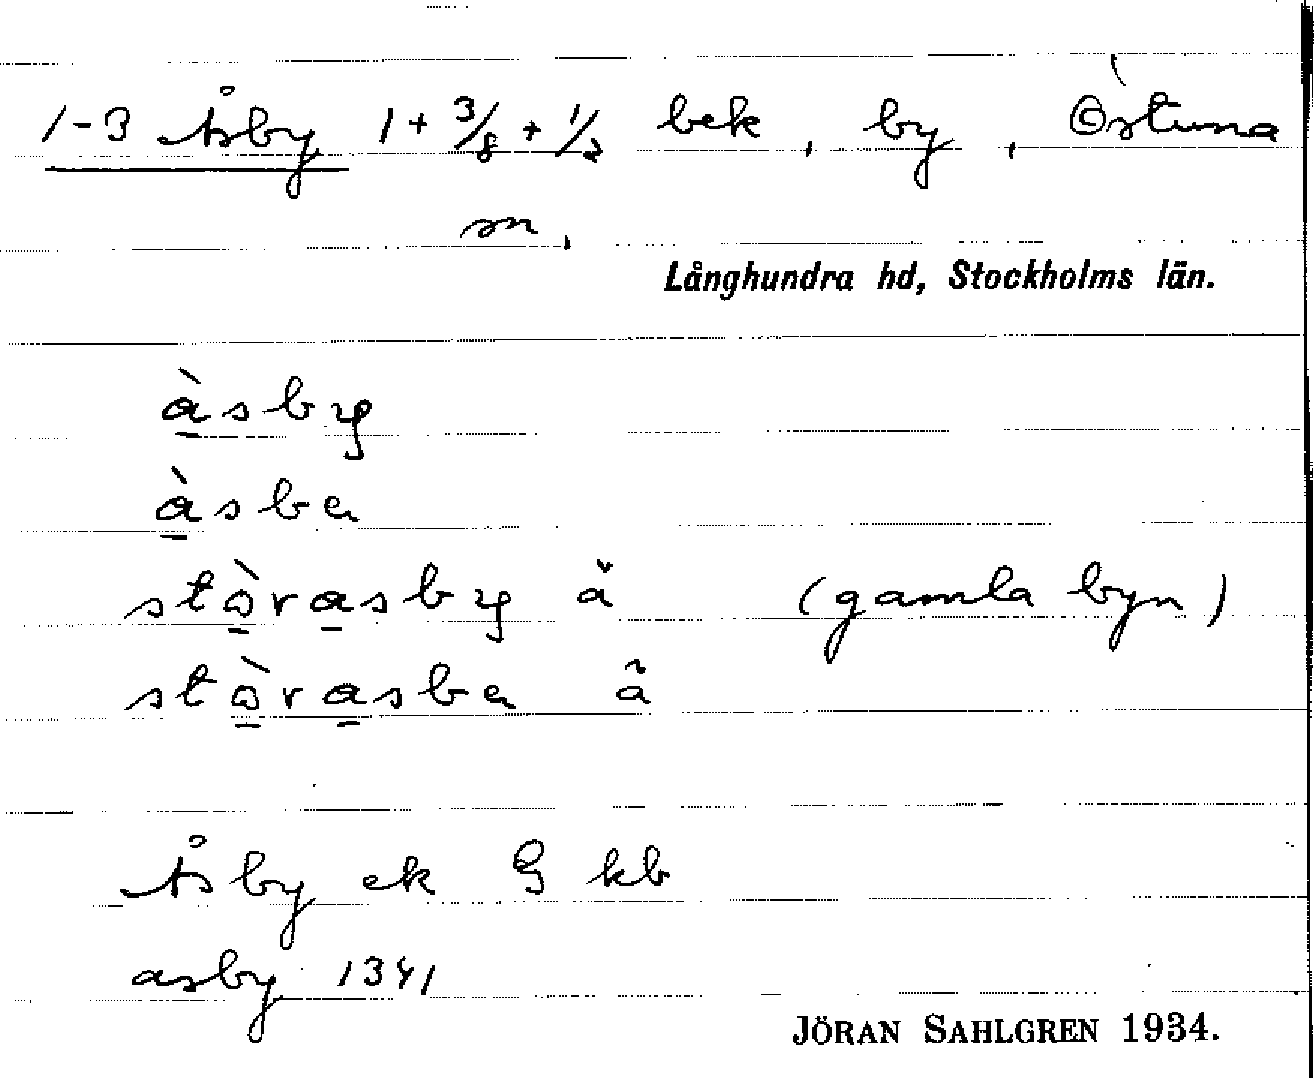 1-3 Åsby 1 + 3/8 + 1/2 bek, by, Östuna
sn,
Långhundra hd, Stockholms län.
à̲sby
à̲sba
stò̲ra̲sby å (gamla byn)
stò̲ra̲sba å
Åsby ek G kb
asby 1341
JÖRAN SAHLGREN 1934.